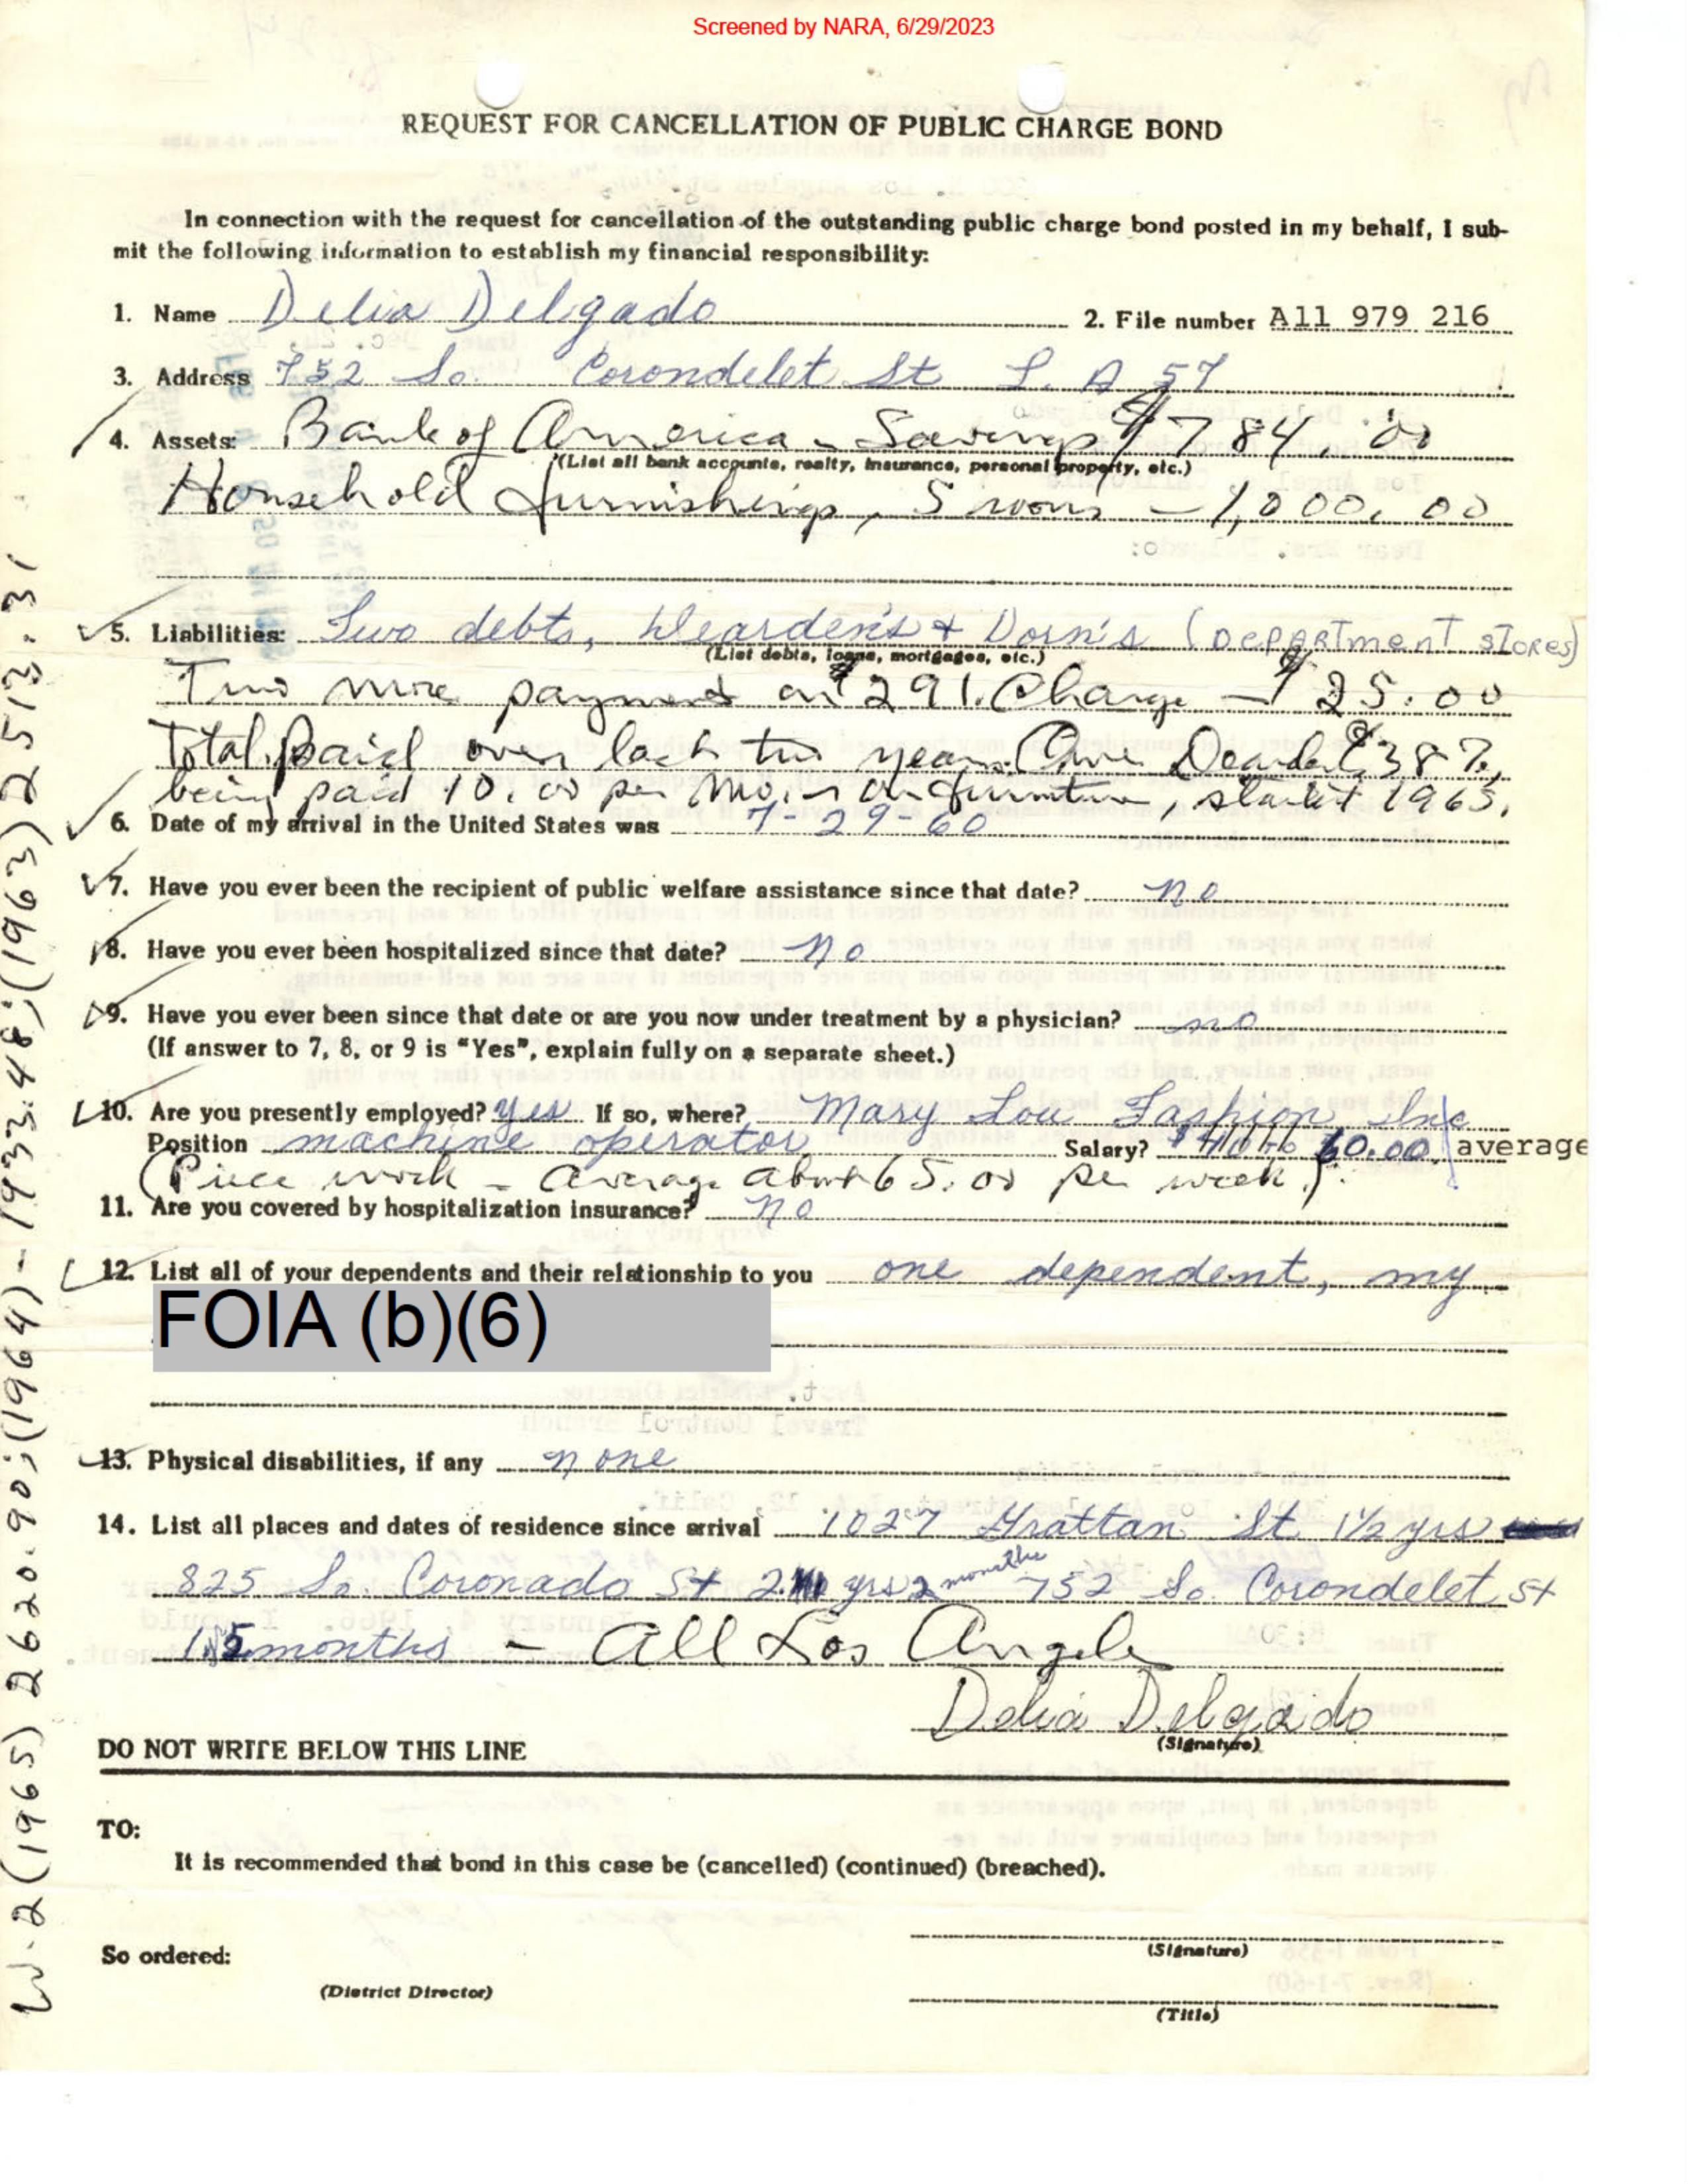 Screened by NARA, 6/29/2023
REQUEST FOR CANCELLATION OF PUBLIC CHARGE BOND
In connection with the request for cancellation of the outstanding public charge bond posted in my behalf, I sub-
mit the following information to establish my financial responsibility:
1. Name Delia Delgado 2. File number A11 979 216
3. Address 752 So. Corondelet St L. A 57
4. Assets: Bank of America - Savings $784.00
(List all bank accounts, realty, insurance, personal property, etc.)
Household furnishings, 5 rooms - 1,000.00
5. Liabilities: Two debts, Dearden's + Dorn's (DEPARTment stores)
(List debts, loans, mortgages, etc.)
Two more payments on $291. Charge - $25.00
Total paid over last two years. Owe Dearden $387,
being paid 10.00 per mo. on furniture, started 1965.
6. Date of my arrival in the United States was 7-29-60
7. Have you ever been the recipient of public welfare assistance since that date? no
8. Have you ever been hospitalized since that date? no
9. Have you ever been since that date or are you now under treatment by a physician? no
(If answer to 7, 8, or 9 is "Yes", explain fully on a separate sheet.)
10. Are you presently employed? yes If so, where? Mary Lou Fashion, Inc
Position machine operator Salary? $40 to 60.00 average
(Piece work - average about 65.00 per week).
11. Are you covered by hospitalization insurance? no
12. List all of your dependents and their relationship to you one dependent, my
FOIA (b)(6)
13. Physical disabilities, if any none
14. List all places and dates of residence since arrival 1027 Grattan St 1 1/2 yrs
825 So. Coronado St 2 yrs 2 months 752 So. Corondelet St
15 months - All Los Angeles
Delia Delgado
(Signature)
DO NOT WRITE BELOW THIS LINE
TO:
It is recommended that bond in this case be (cancelled) (continued) (breached).
(Signature)
So ordered:
(District Director)
(Title)
W-2 (1965) 2620.90; (1964) - 1933.48; (1963) 2513.31